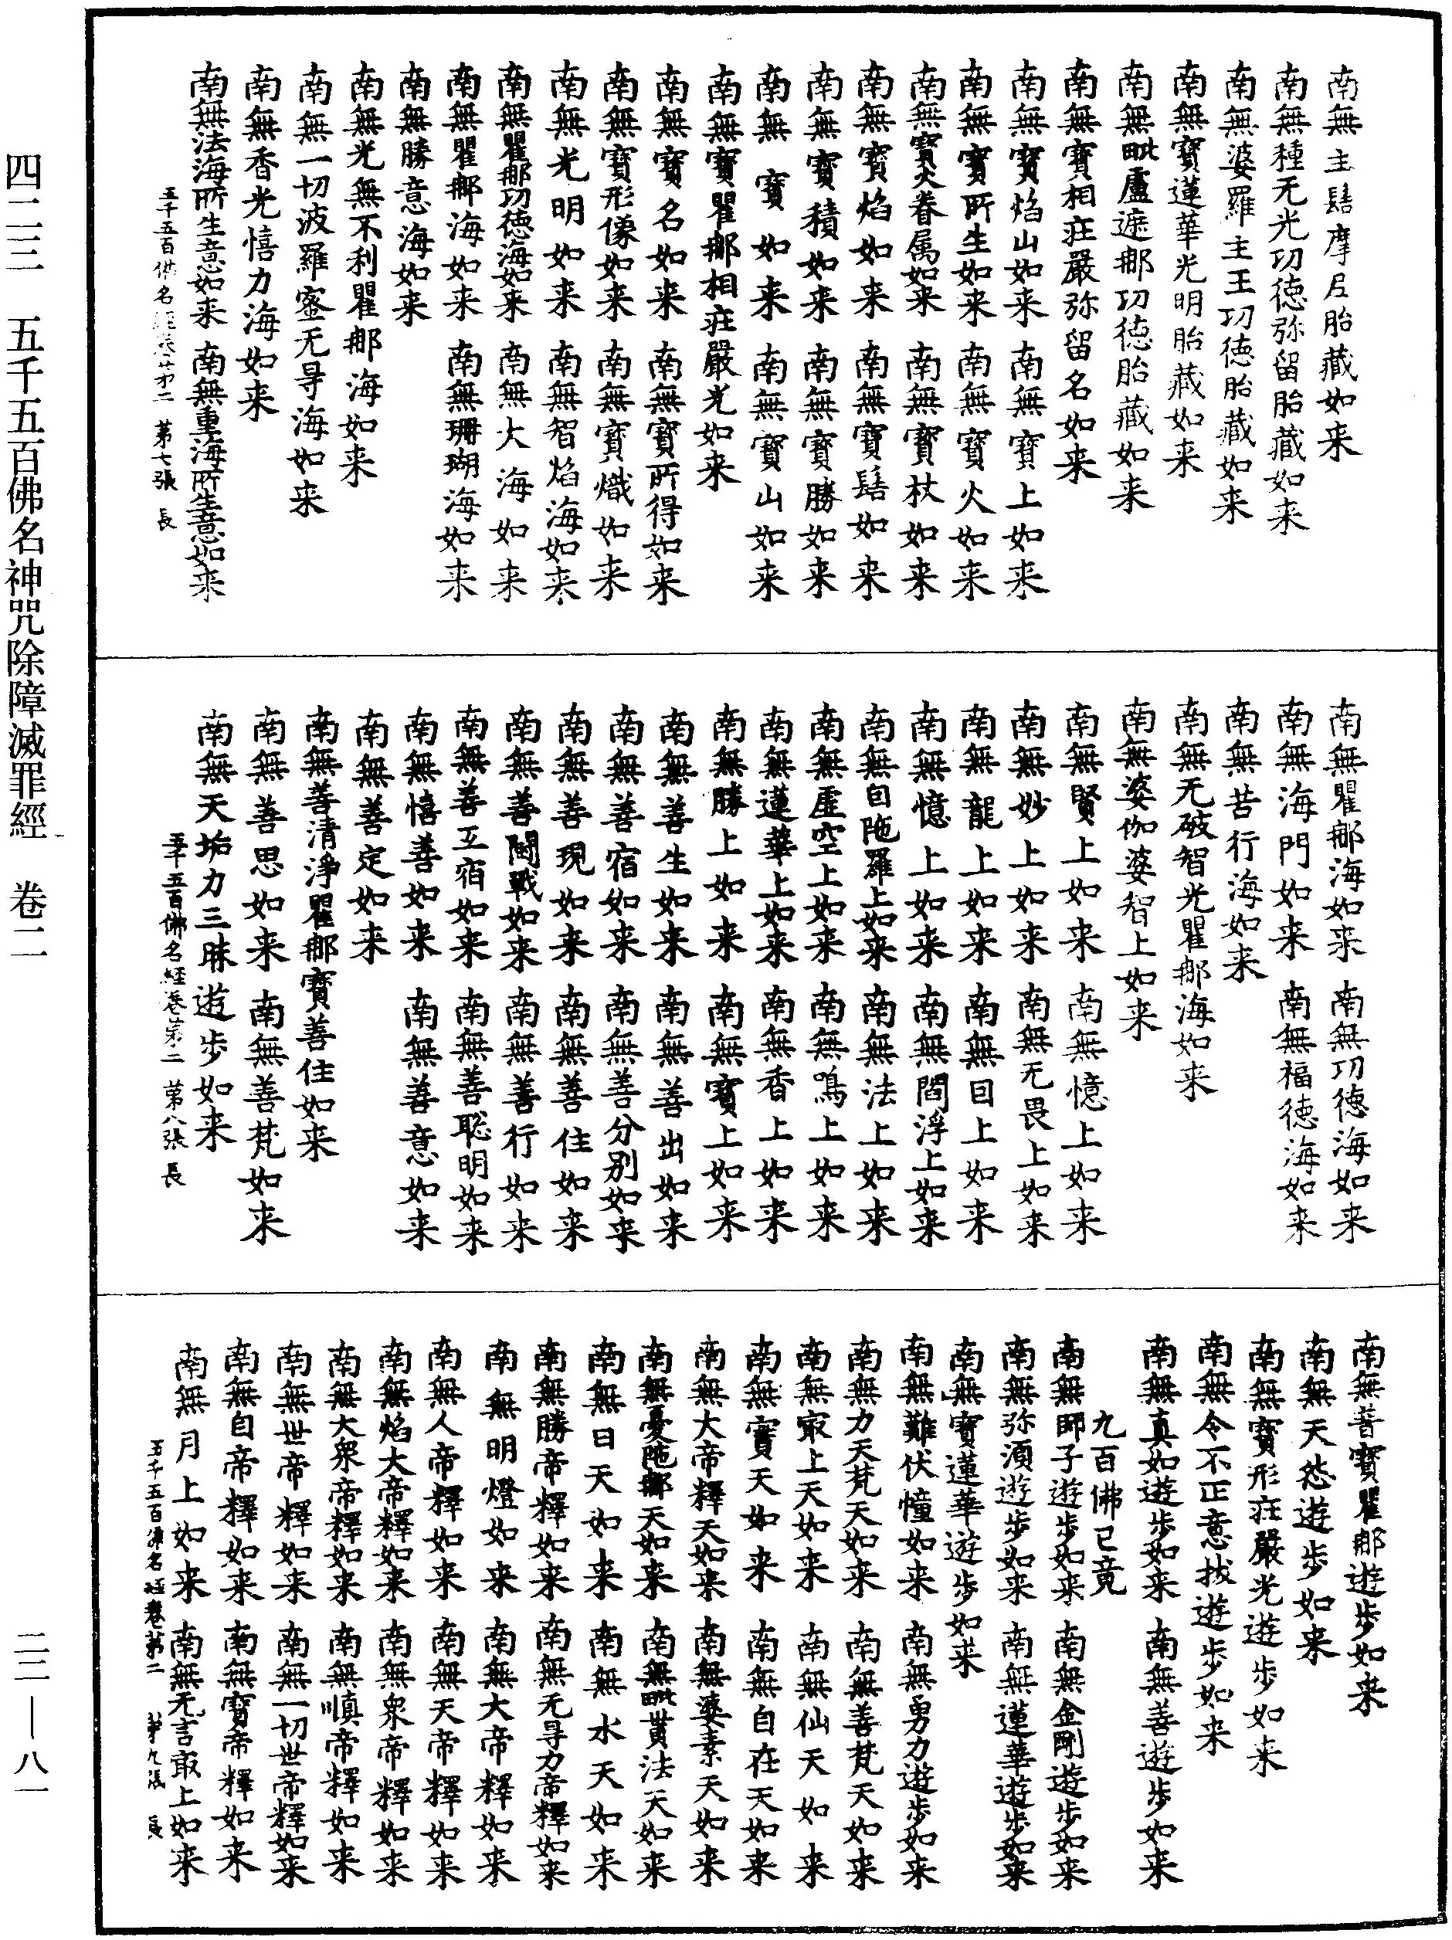 南無主髻摩尼胎藏如来
南無種无光功徳弥留胎藏如来
南無婆羅主王功徳胎藏如来
南無寶蓮華光明胎藏如来
南無毗盧遮那功徳胎藏如来
南無寶相莊嚴弥留名如来
南無寶焰山如来 南無寶上如来
南無寶所生如来 南無寶火如来
南無寶火眷属如来 南無寶杖如来
南無寶焰如来 南無寶髻如来
南無寶積如来 南無寶勝如来
南無寶如来 南無寶山如来
南無寶瞿那相莊嚴光如来
南無寶名如来 南無寶所得如来
南無寶形像如来 南無寶熾如来
南無光明如来 南無智焰海如来
南無瞿那功徳海如来 南無大海如来
南無瞿那海如来 南無珊瑚海如来
南無勝意海如来
南無光無不利瞿那海如来
南無一切波羅蜜无㝵海如来
南無香光憘力海如来
南無法海所生意如来 南無重海所生意如来
五千五百佛名經卷苐二 第七張 長
南無瞿那海如来 南無功徳海如来
南無海門如来 南無福徳海如来
南無苦行海如来
南無无破智光瞿那海如来
南無婆伽婆智上如来
南無賢上如来 南無憶上如来
南無妙上如来 南無无畏上如来
南無龍上如来 南無目上如来
南無憶上如来 南無閻浮上如来
南無自陁羅上如来 南無法上如来
南無虛空上如来 南無鳴上如来
南無蓮華上如来 南無香上如来
南無勝上如来 南無寶上如来
南無善生如来 南無善出如来
南無善宿如来 南無善分别如来
南無善現如来 南無善住如来
南無善鬪戰如来 南無善行如来
南無善互宿如来 南無善聡明如来
南無憘善如来 南無善意如来
南無善定如来
南無善清淨瞿那寶善住如来
南無善思如来 南無善梵如来
南無天垢力三昧遊步如来
五千五百佛名經卷第二 第八張 長
南無菩寶瞿那遊步如来
南無天怨遊步如来
南無寶形莊嚴光遊步如来
南無令不正意拔遊步如来
南無真如遊步如来 南無善遊步如来
九百佛已竟
南無師子遊步如来 南無金剛遊步如来
南無弥湏遊步如来 南無蓮華遊步如来
南無寶蓮華遊步如来
南無難伏憧如来 南無勇力遊步如来
南無力天梵天如来 南無善梵天如来
南無㝡上天如来 南無仙天如来
南無寶天如来 南無自在天如来
南無大帝釋天如来 南無婆素天如来
南無憂陁那天如来 南無毗貰法天如来
南無日天如来 南無水天如来
南無勝帝釋如来 南無无㝵力帝釋如来
南無明燈如来 南無大帝釋如来
南無人帝釋如来 南無天帝釋如来
南無焰大帝釋如来 南無衆帝釋如来
南無大衆帝釋如来 南無順帝釋如来
南無世帝釋如来 南無一切世帝釋如来
南無自帝釋如来 南無寶帝釋如来
南無月上如来 南無无言㝡上如来
五千五百佛名經卷第二 第九張 長
四二三 五千五百佛名神咒除障滅罪經 卷二
二二—八一